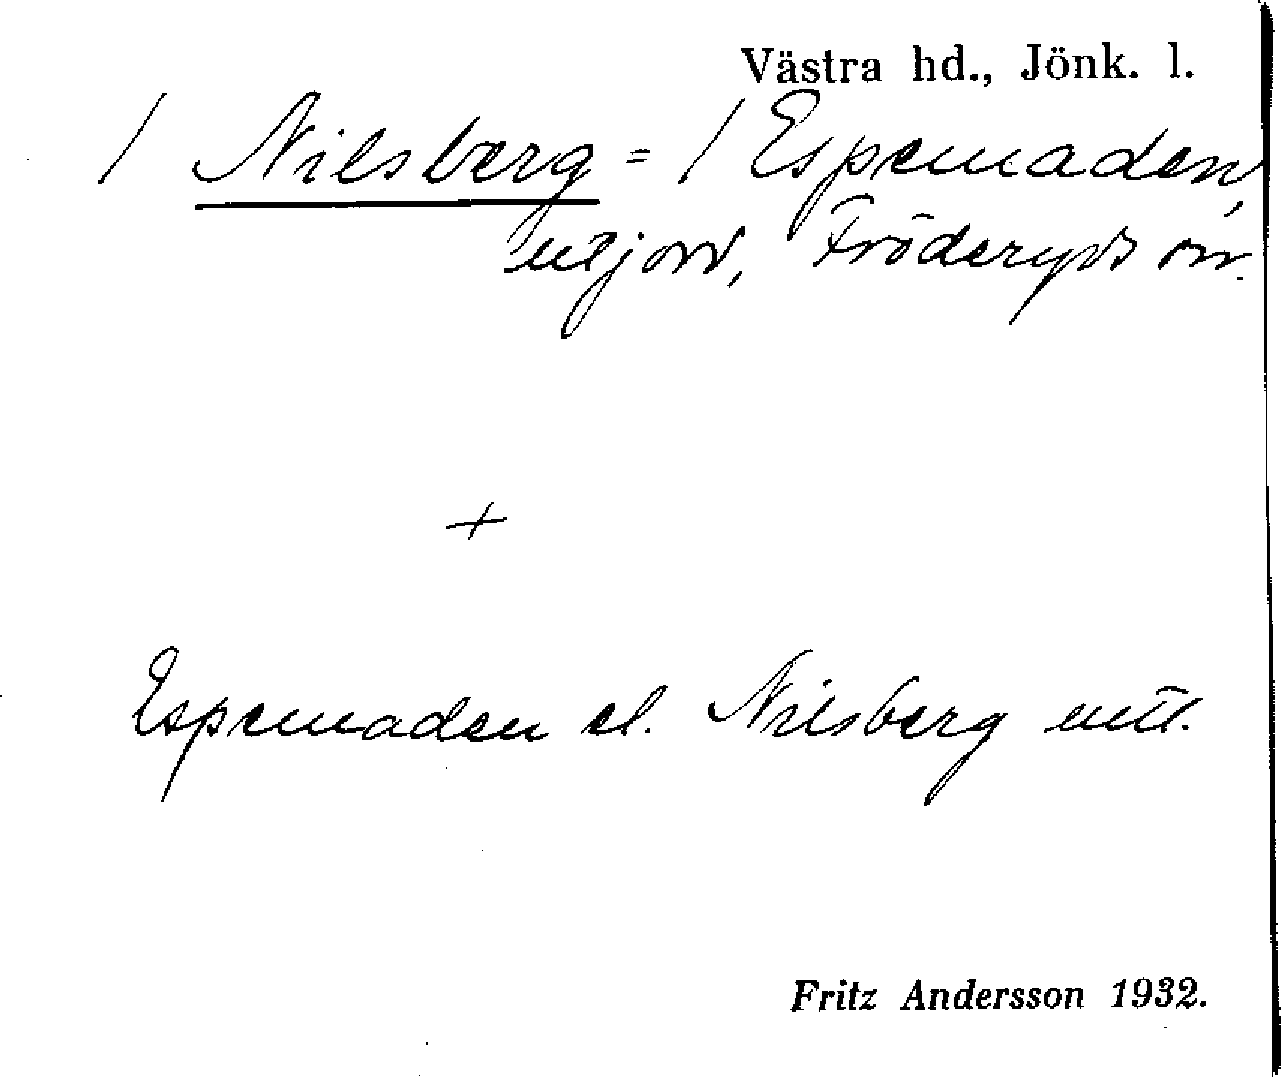 Västra hd., Jönk. l.
/ Nilsberg = / Espemaden,
utjord, Fröderyds
+
Espemaden el. Nilsberg
Fritz Andersson 1932.